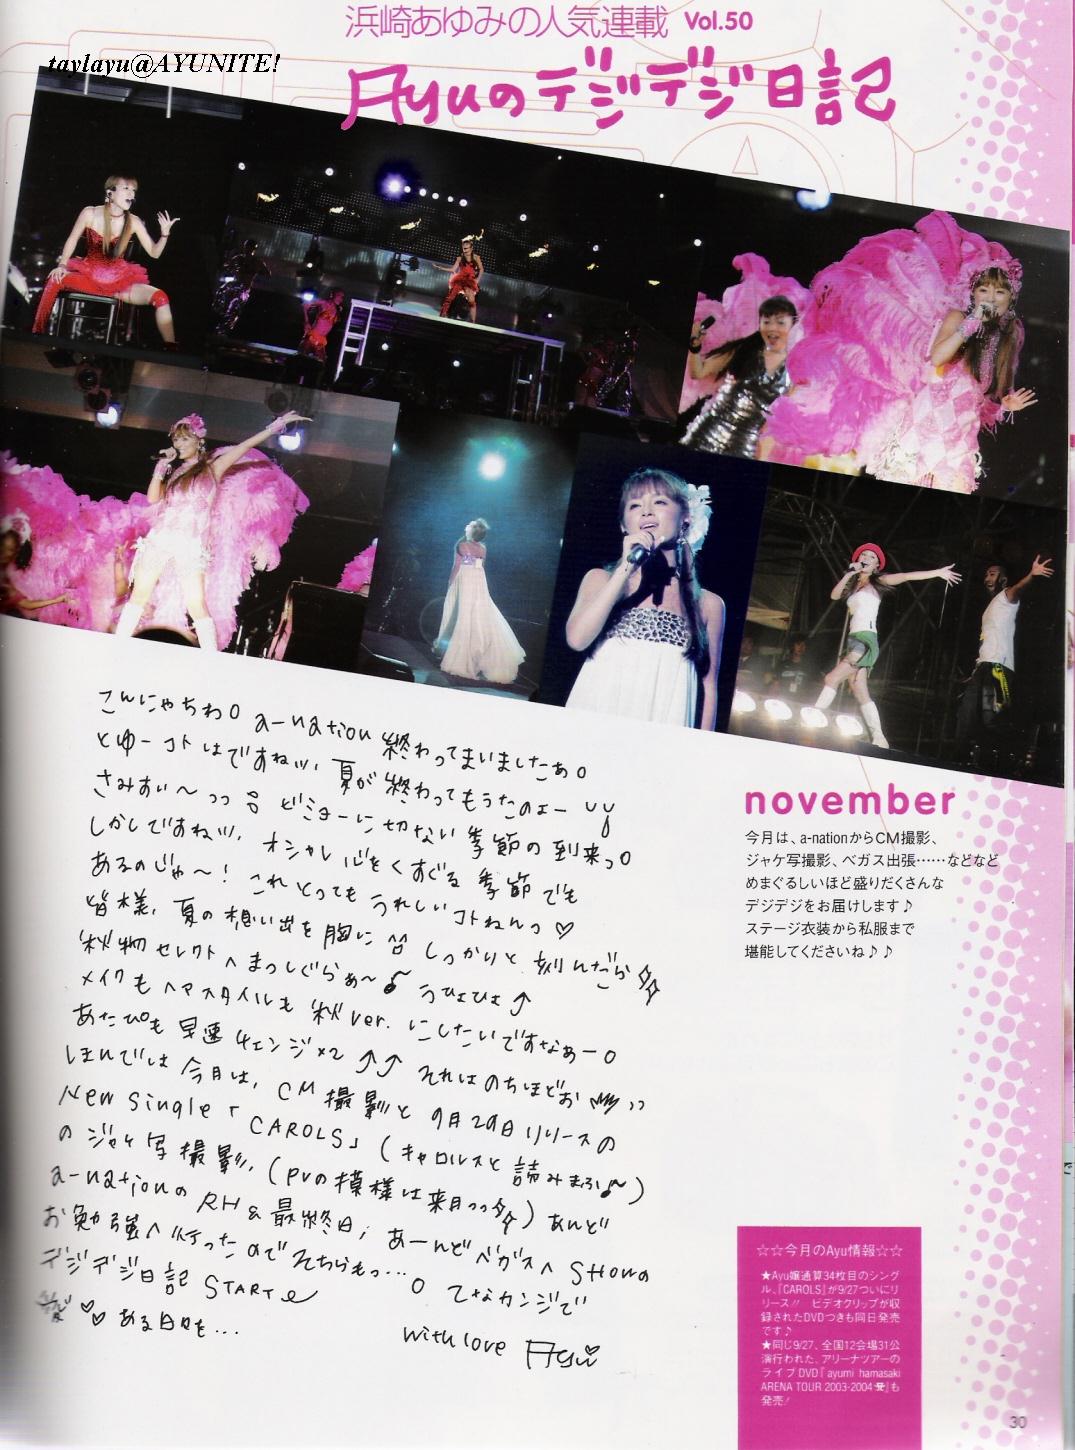 浜崎あゆみの人気連載 Vol.50
taylayu@AYUNITE!
Ayuのデジデジ日記
こんにゃちわo a-nation 終わってまいましたあo
とゆーコトはですねッッ、夏が終わってもうたのょー
さみすぃ〜っっ ビミョーに切ない季節の到来っo
しかしですねッッ、オシャレ心をくすぐる季節でも
あるのじゃ〜! これとってもうれしいコトねんっ♡
皆様、夏の想い出を胸に しっかりと刻んだら
秋物セレクトへまっしぐらぁ〜♪ うひょひょ↑
メイクもヘアスタイルも秋ver. にしたいですなぁーo
あたぴも早速チェンジ×2 ↑↑ それはのちほどお
ほんでは今月は、CM撮影と9月29日リリースの
New Single「CAROLS」(キャロルスと読みまふ♪)
のジャケ写撮影、(PVの模様は来月っっ)あんど
a-nationのRH&最終日; あーんどベガスへSHOWの
お勉強へ行ったのでそちらもっ...o てなカンジで
デジデジ日記 START
♡♡ある日々を...
with love Ayu
november
今月は、a-nationからCM撮影、
ジャケ写撮影、ベガス出張……などなど
めまぐるしいほど盛りだくさんな
デジデジをお届けします♪
ステージ衣装から私服まで
堪能してくださいね♪♪
☆☆今月のAyu情報☆☆
★Ayu嬢通算34枚目のシング
ル、『CAROLS』が9/27ついにリ
リース!! ビデオクリップが収
録されたDVDつきも同日発売
です♪
★同じ9/27、全国12会場31公
演行われた、アリーナツアーの
ライブDVD『ayumi hamasaki
ARENA TOUR 2003-2004 』も
発売!
30